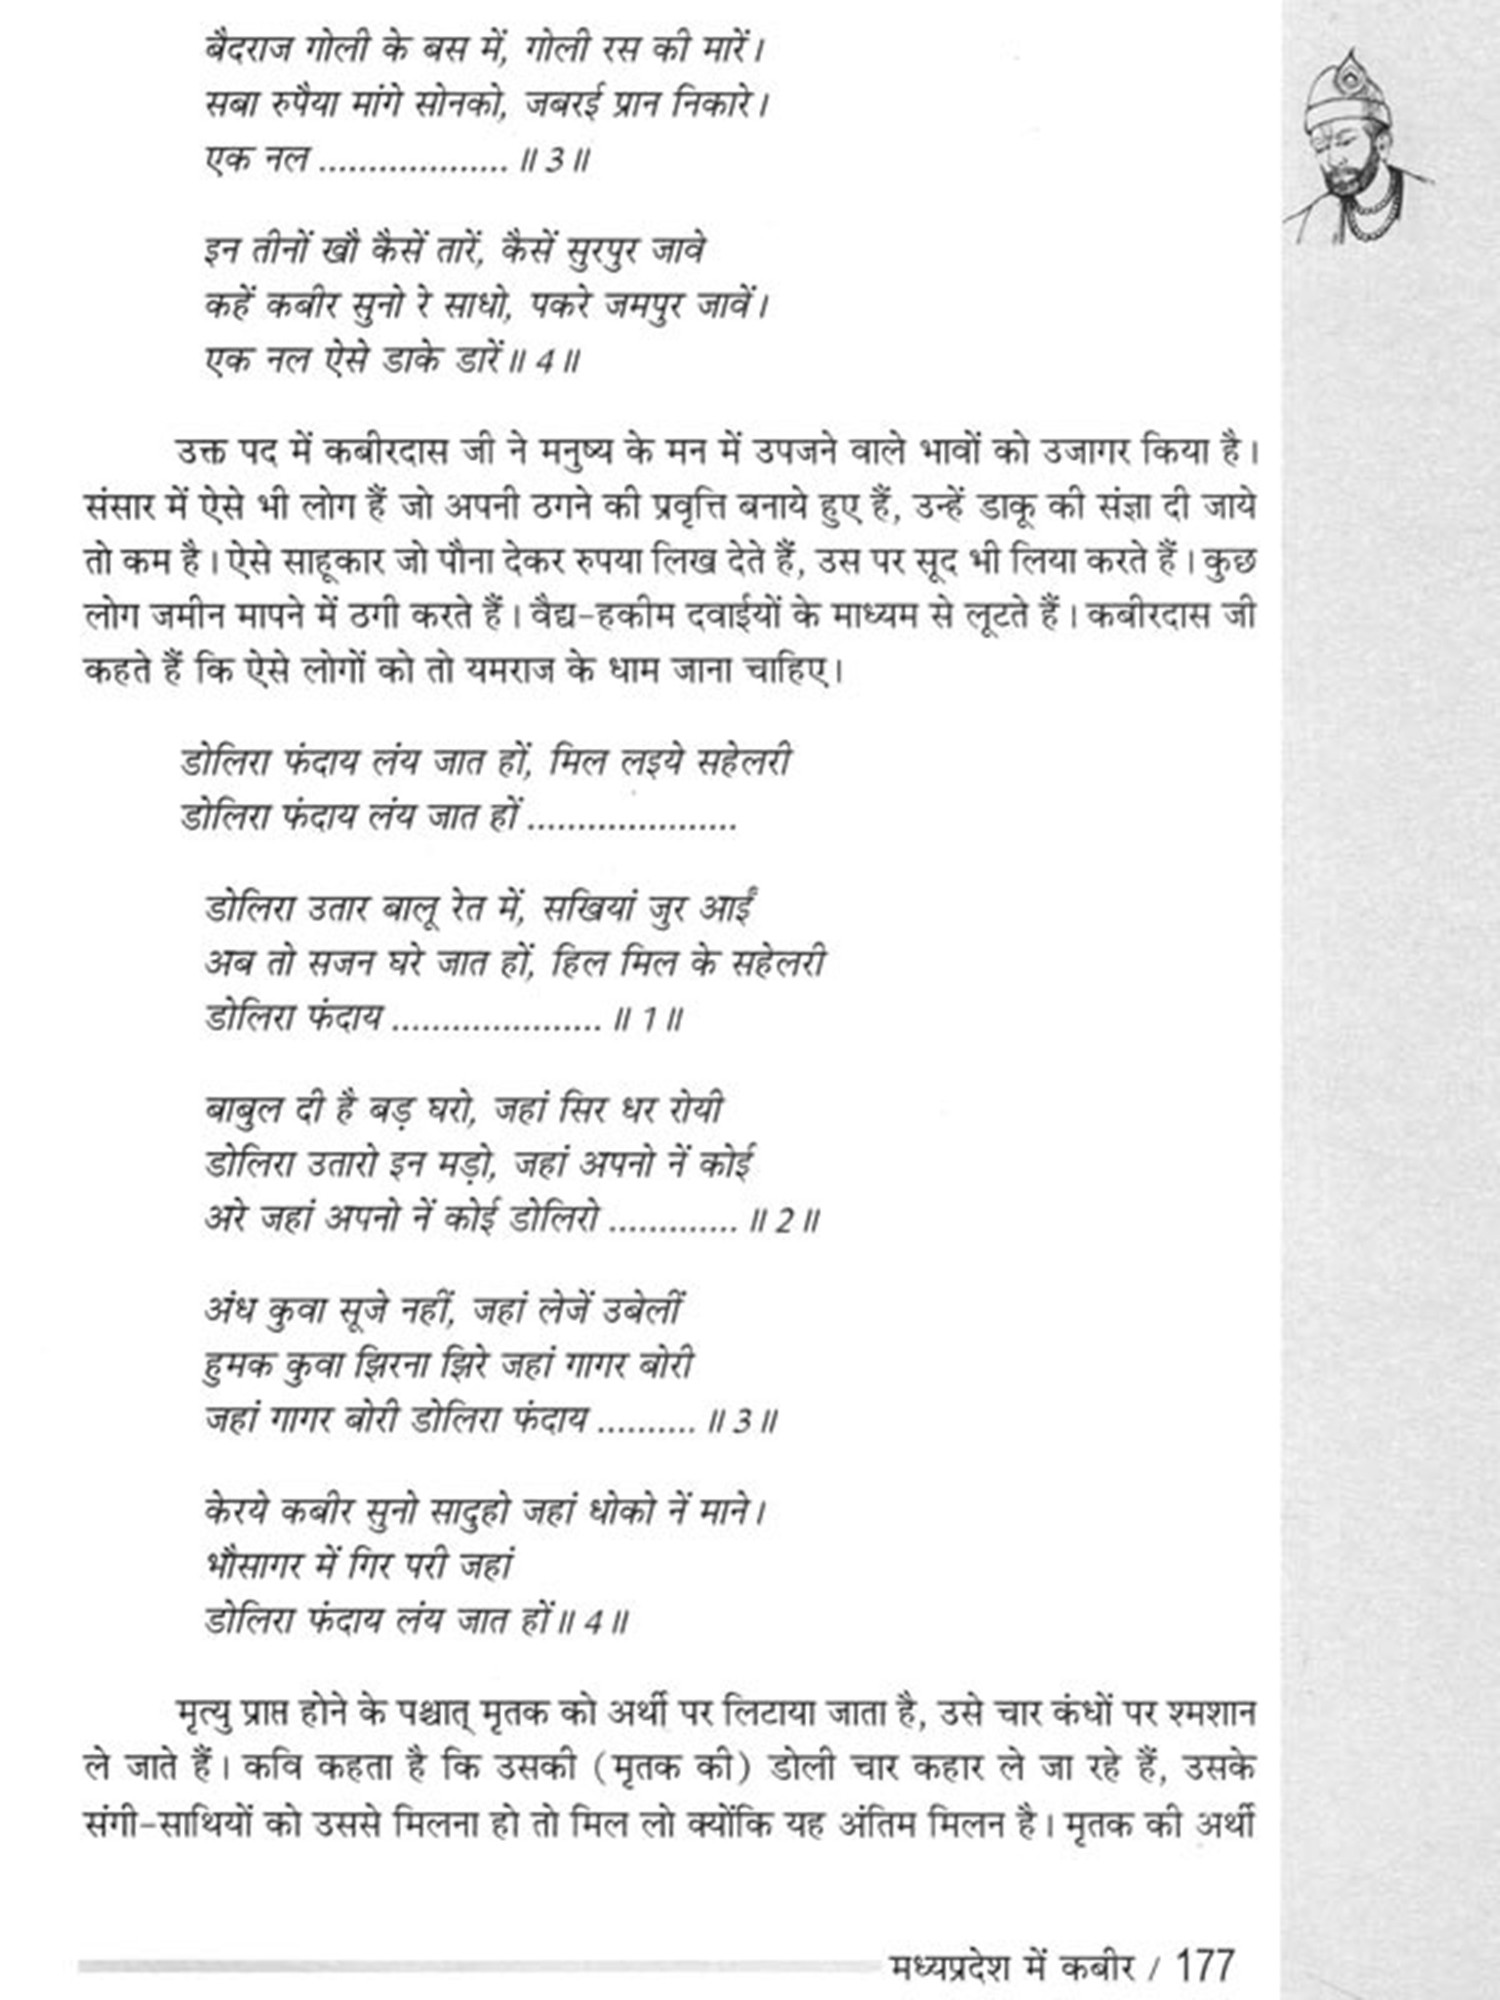 बैदराज गोली के बस में, गोली रस की मारें।
सबा रुपैया मांगे सोनको, जबरई प्रान निकारे।
एक नल ................... ॥ 3 ॥
इन तीनों खौ कैसें तारें, कैसें सुरपुर जावे
कहें कबीर सुनो रे साधो, पकरे जमपुर जावें।
एक नल ऐसे डाके डारें॥ 4 ॥
उक्त पद में कबीरदास जी ने मनुष्य के मन में उपजने वाले भावों को उजागर किया है।
संसार में ऐसे भी लोग हैं जो अपनी ठगने की प्रवृत्ति बनाये हुए हैं, उन्हें डाकू की संज्ञा दी जाये
तो कम है। ऐसे साहूकार जो पौना देकर रुपया लिख देते हैं, उस पर सूद भी लिया करते हैं। कुछ
लोग जमीन मापने में ठगी करते हैं। वैद्य-हकीम दवाईयों के माध्यम से लूटते हैं। कबीरदास जी
कहते हैं कि ऐसे लोगों को तो यमराज के धाम जाना चाहिए।
डोलिरा फंदाय लंय जात हों, मिल लइये सहेलरी
डोलिरा फंदाय लंय जात हों .....................
डोलिरा उतार बालू रेत में, सखियां जुर आईं
अब तो सजन घरे जात हों, हिल मिल के सहेलरी
डोलिरा फंदाय ..................... ॥ 1 ॥
बाबुल दी है बड़ घरो, जहां सिर धर रोयी
डोलिरा उतारो इन मड़ो, जहां अपनो नें कोई
अरे जहां अपनो नें कोई डोलिरो ............. ॥ 2 ॥
अंध कुवा सूजे नहीं, जहां लेजें उबेलीं
हुमक कुवा झिरना झिरे जहां गागर बोरी
जहां गागर बोरी डोलिरा फंदाय .......... ॥ 3 ॥
केरये कबीर सुनो सादुहो जहां धोको नें माने।
भौसागर में गिर परी जहां
डोलिरा फंदाय लंय जात हों॥ 4 ॥
मृत्यु प्राप्त होने के पश्चात् मृतक को अर्थी पर लिटाया जाता है, उसे चार कंधों पर श्मशान
ले जाते हैं। कवि कहता है कि उसकी (मृतक की) डोली चार कहार ले जा रहे हैं, उसके
संगी-साथियों को उससे मिलना हो तो मिल लो क्योंकि यह अंतिम मिलन है। मृतक की अर्थी
मध्यप्रदेश में कबीर / 177